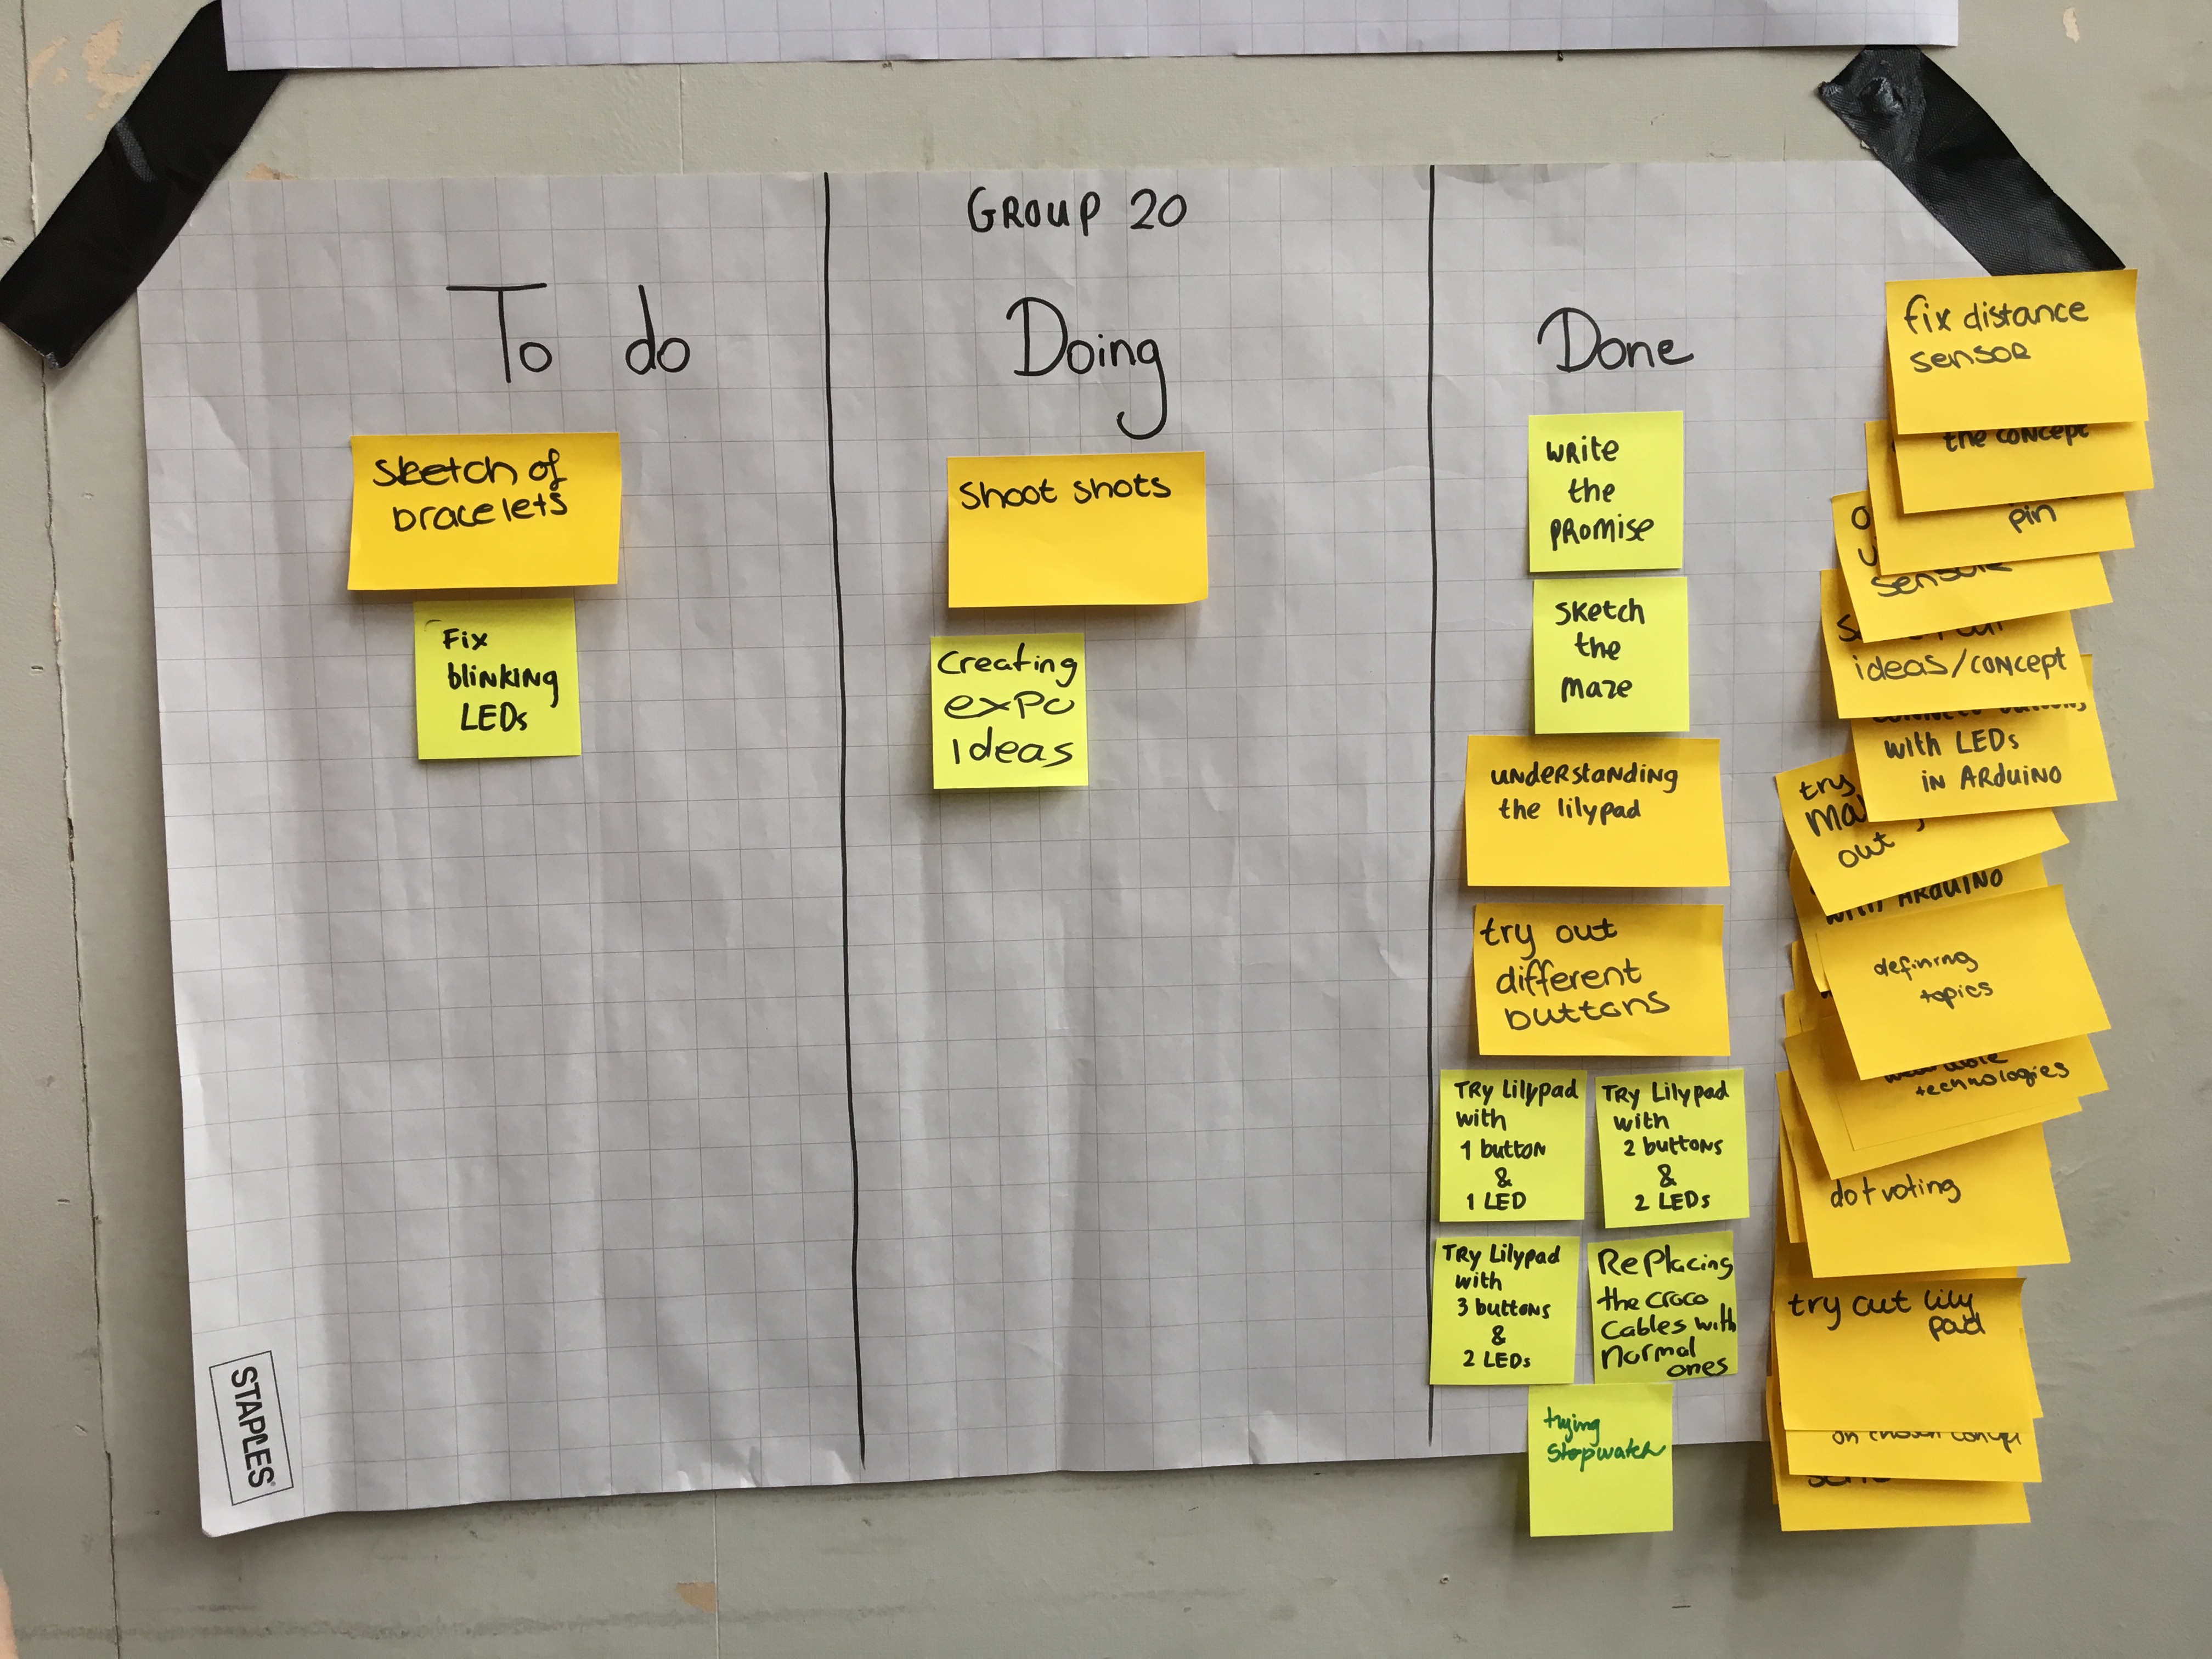 GROUP 20
To do
Sketch of
bracelets
Fix
blinking
LEDs
Doing
Shoot shots
Creating
expo
ideas
Done
write
the
promise
sketch
the
maze
understanding
the lilypad
try out
different
buttons
Try Lilypad
with
1 button
&
1 LED
Try Lilypad
with
2 buttons
&
2 LEDs
Try Lilypad
with
3 buttons
&
2 LEDs
Replacing
the croco
cables with
normal
ones
trying
stopwatch
fix distance
sensor
the concept
pin
sensors
ideas/concept
with LEDs
in Arduino
try
out
with Arduino
defining
topics
technologies
dotvoting
try out lily
pad
on chosen
STAPLES